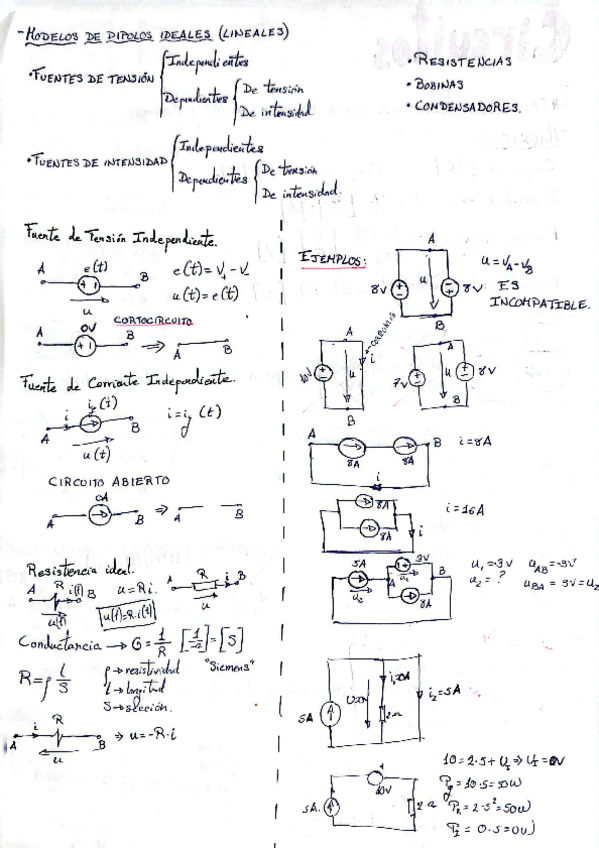 - MODELOS DE DIPOLOS IDEALES (LINEALES)
• FUENTES DE TENSIÓN
Independientes
Dependientes
De tensión
De intensidad.
• RESISTENCIAS
• BOBINAS
• CONDENSADORES.
• FUENTES DE INTENSIDAD
Independientes
Dependientes
De tensión
De intensidad.
Fuente de Tensión Independiente.
A e(t) B
+ -
u
e(t) = V+ - V-
u(t) = e(t)
CORTOCIRCUITO
A 0V B ⇒ A B
Fuente de Corriente Independiente.
A i ig(t) B
u(t)
i = ig(t)
CIRCUITO ABIERTO
A 0A B ⇒ A B
Resistencia ideal.
A R i(t) B
u(t)
u = Ri.
u(t) = R·i(t)
A R i B
u
Conductancia → G = 1/R [1/Ω] = [S]
"Siemens"
R = ρ l/S
ρ → resistividad
l → longitud
S → sección.
A i R B
u
⇒ u = -R·i
EJEMPLOS:
A
8V u 8V
B
u = VA - VB
ES
INCOMPATIBLE.
A
u i
B
A
7V u 8V
B
A 8A 8A B
i
i = 8A
8A
8A
i
i = 16A
5A A 3V B
u1
u2 8A
u1 = -3V uAB = -3V
u2 = ? uBA = 3V = u2
5A
2Ω
i2 = 5A
5A.
10V
2Ω
Pg = 10·5 = 50W
PR = 2·5² = 50W
PI = 0·5 = 0W